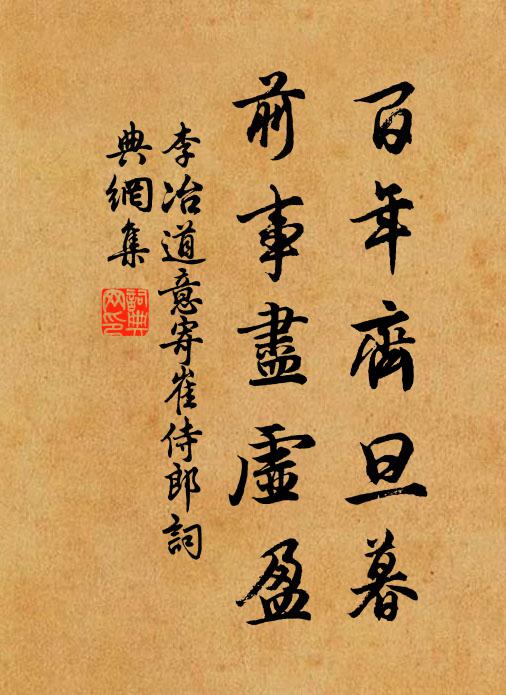 百年齊旦暮
前事盡虛盈
李冶道意寄崔侍郎詞
典網集
詞典
网印